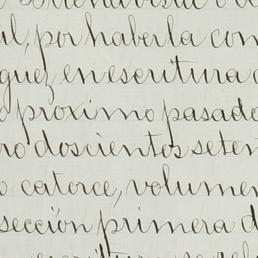 ul, por haberla con
guez, en escritura
o proximo pasado
ro doscientos seten
o catorce, volumen
sección primera d